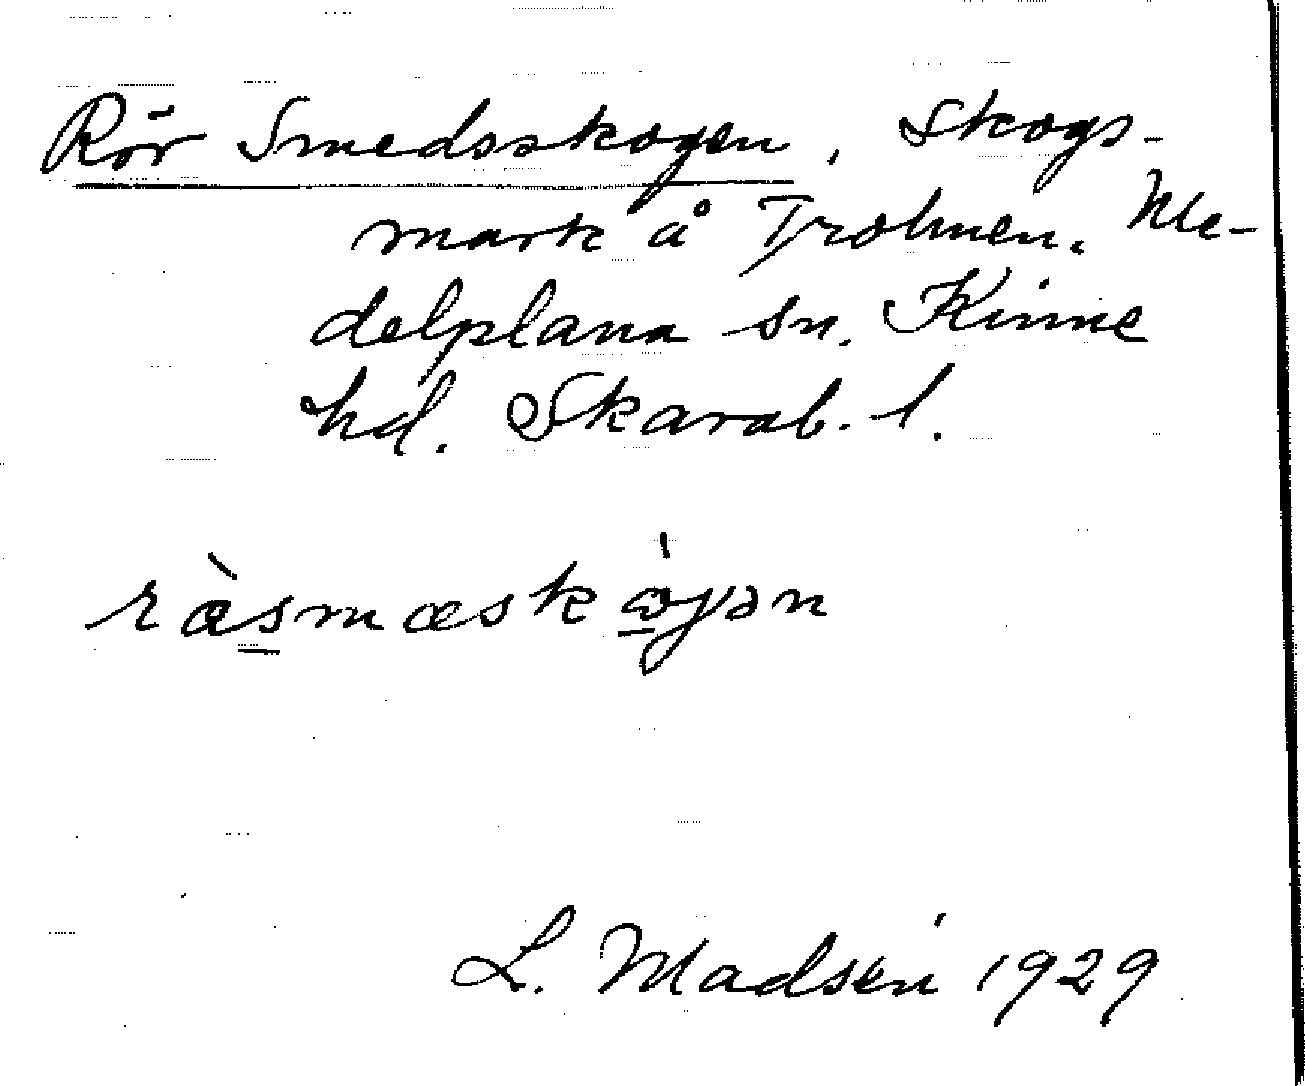 Rör Smedsskogen, Skogs-
mark å Trolmen. Me-
delplana sn. Kinne
hd. Skarab. l.
ræ̀smæskòγən
L. Madsén 1929